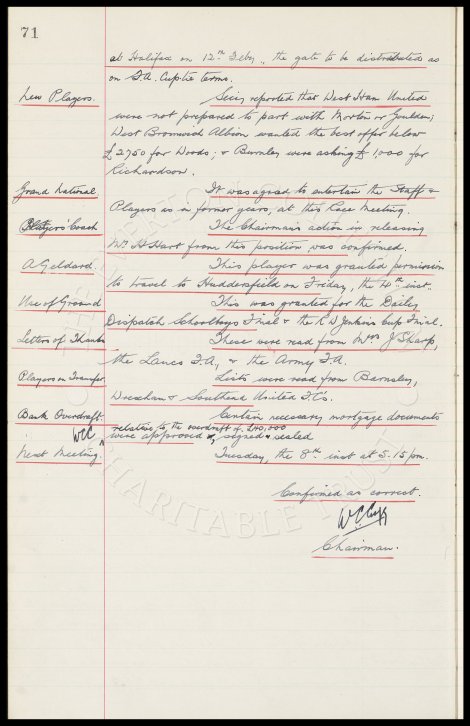 71
at Halifax on 12th Feby., the gate to be distributed as
on F.A. Cup tie terms.
New Players. Secy. reported that West Ham United
were not prepared to part with Morton or Goulden;
West Bromwich Albion wanted the best offer below
£2750 for Woods; & Burnley were asking £1,000 for
Richardson.
Grand National It was agreed to entertain the Staff &
Players as in former years, at this Race Meeting.
Players' Coach The Chairman's action in releasing
Mr. H Hart from this position was confirmed.
A Geldard. This player was granted permission
to travel to Huddersfield on Friday, the 4th inst.
Use of Ground This was granted for the Daily
Dispatch Schoolboys Final & the R W Jenkins Cup Final.
Letters of Thanks These were read from Mrs J Sharp,
the Lancs F.A., & the Army F.A.
Players on Transfer Lists were read from Barnsley,
Wrexham & Southend United F.Cs.
Bank Overdraft. Certain necessary mortgage documents
relative to the overdraft of £40,000
WCC were approved, signed & sealed
Next Meeting. Tuesday, the 8th inst at 5.15 pm.
Confirmed as correct.
W C Cuff
Chairman.
CHARITABLE TRUST